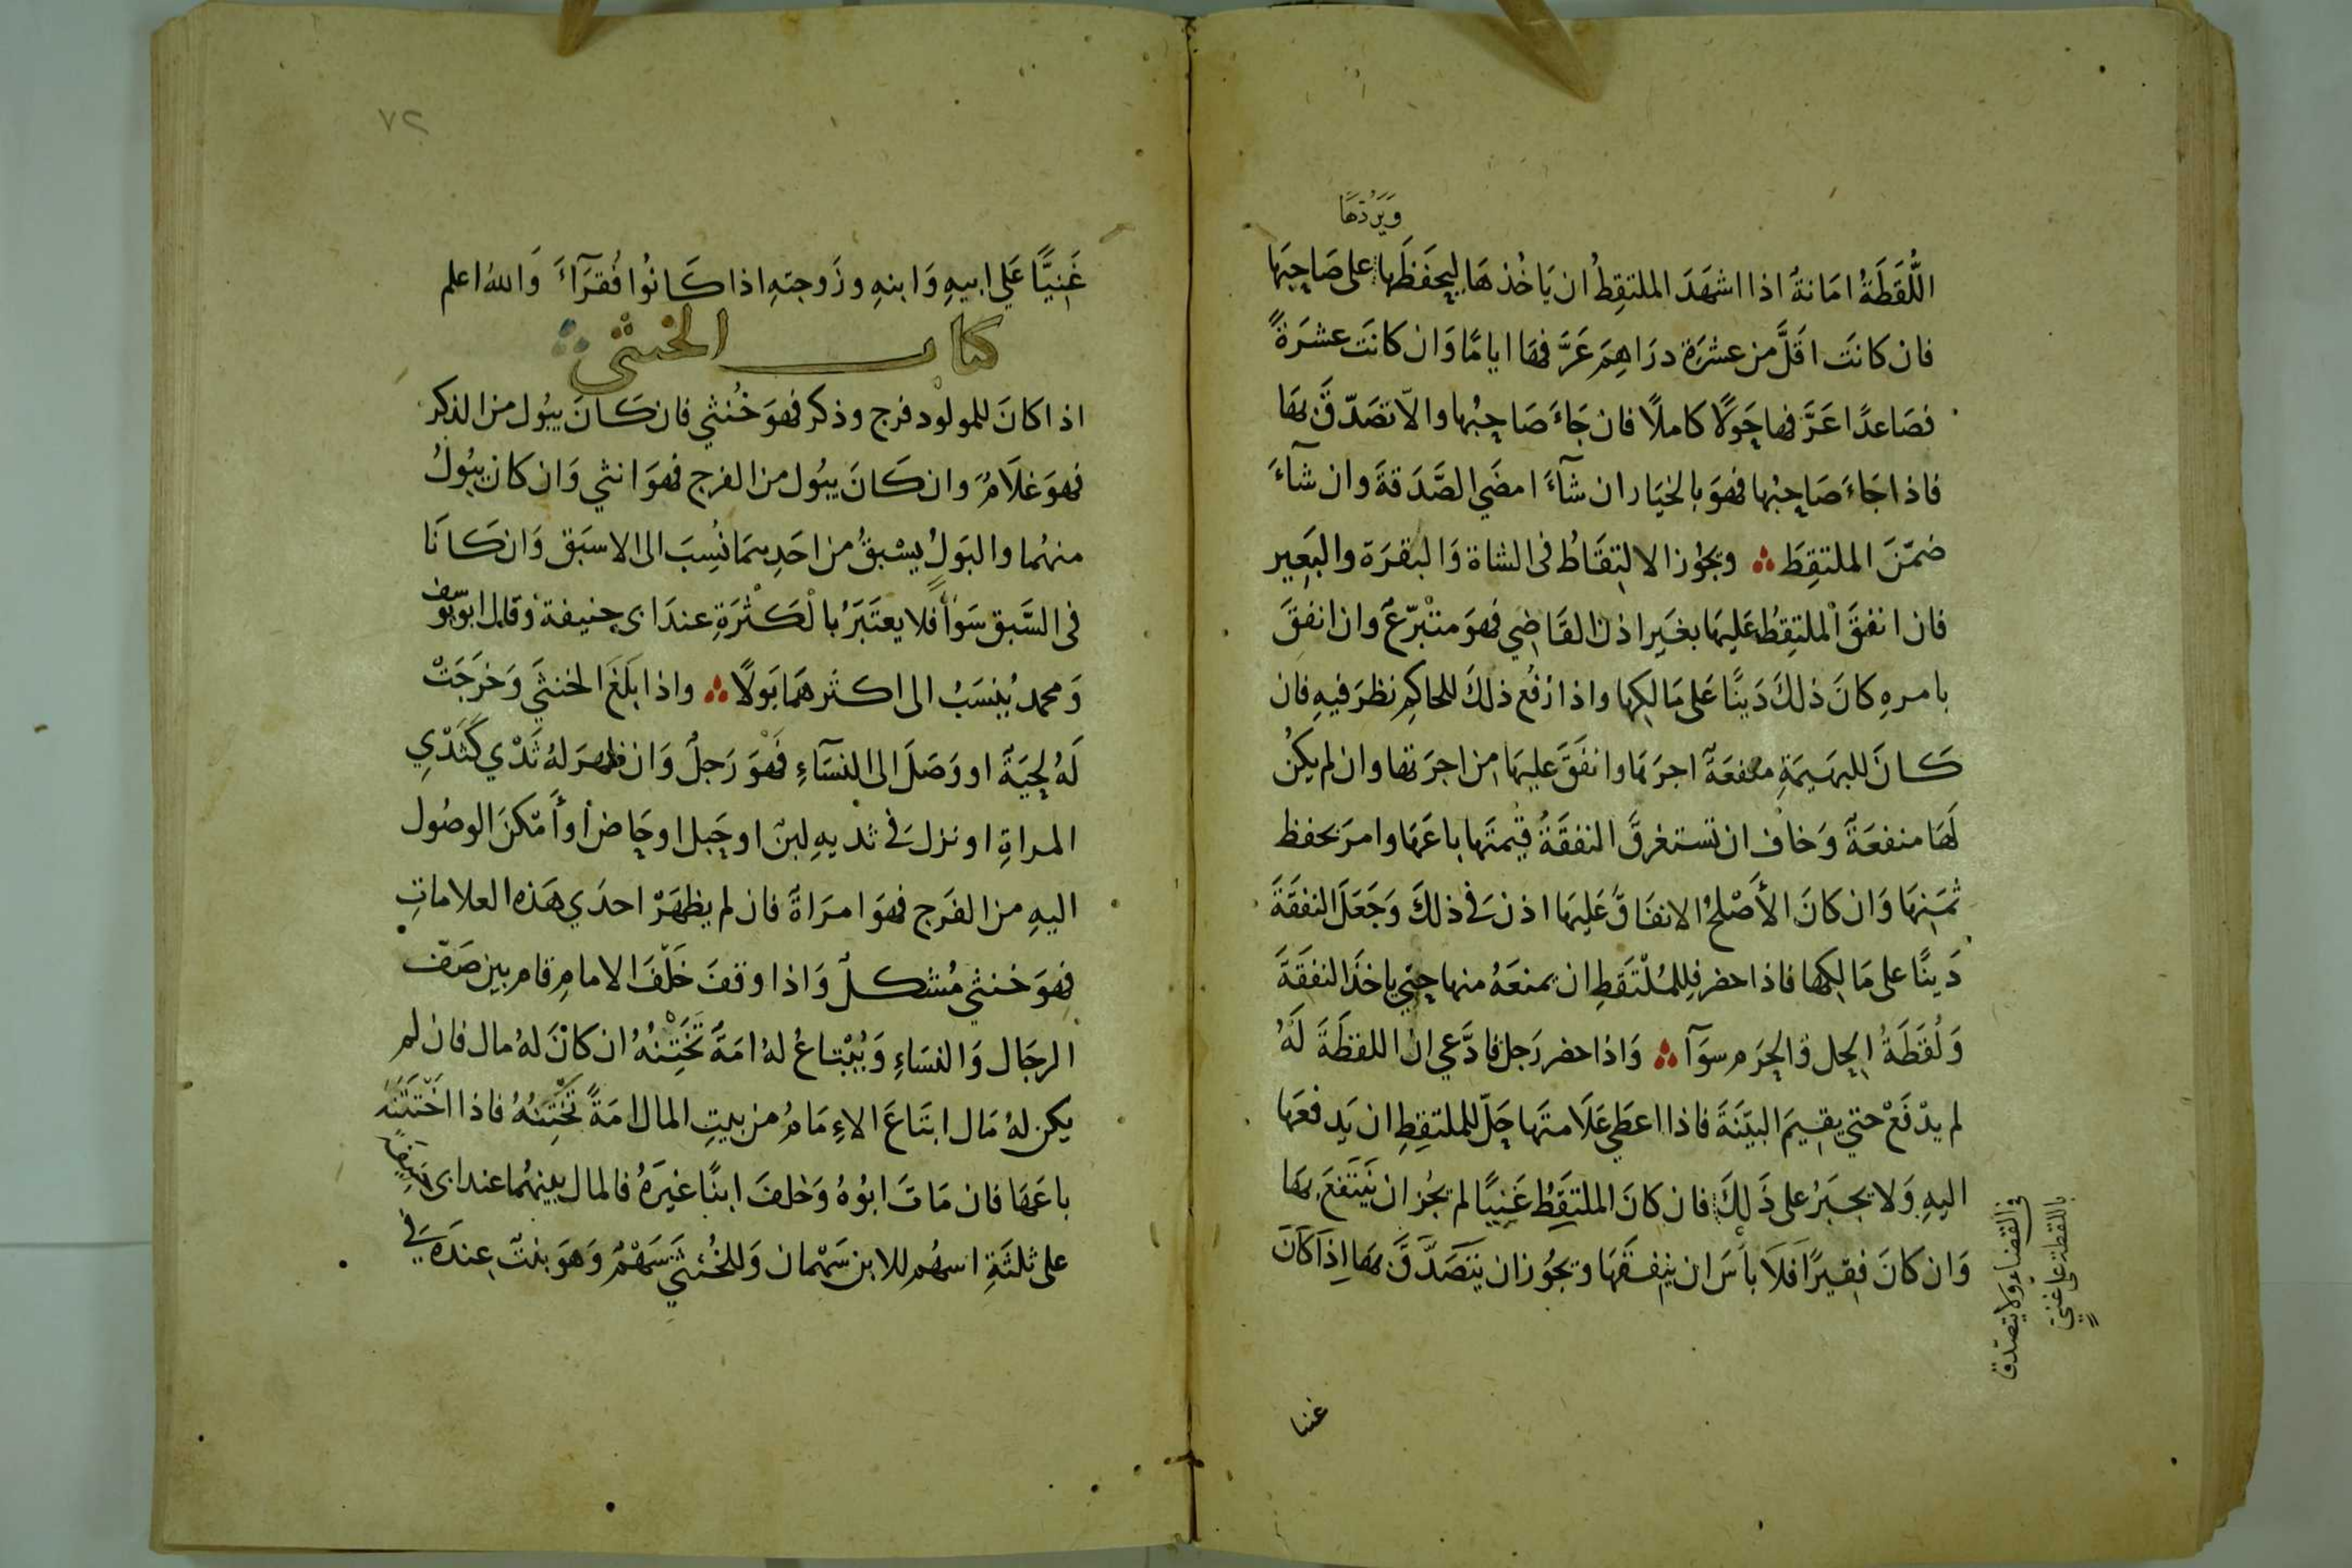 ويردها
اللُّقَطَةُ امَانةٌ اذا اشهَدَ الملتقِطُ ان يَاخُذهَا ليحفَظَها على صَاحِبَها
فان كانَت اقَلَّ من عشرَة درَاهِمَ عَرَّفها ايامًا وَان كانَت عشرَةً
فصَاعدًا عَرَّفها حَولًا كاملًا فان جَاءَ صَاحِبُها والّا تصَدّقَ بهَا
فاذا جَاءَ صَاحِبُها فهوَ بالخيَار ان شآءَ امضَي الصَّدَقةَ وان شآءَ
ضمّنَ الملتقِطَ ۞ ويجُوز الالتِقَاطُ فى الشاة وَالبقرَة والبَعِير
فان انفقَ الملتقِطُ عَليهَا بغَيِر اذن القَاضِي فهوَ متبرّعٌ وان انفقَ
بامرهِ كانَ ذلكَ دَينًا عَلى مَالكِها واذا رُفع ذلكَ للحاكِم نظرَ فيهِ فان
كَانَ للبهَيمَةِ منفعَةٌ اجرَهَا وانفَقَ عليهَا من اجرَتها وان لم يكُن
لهَا منفعَةٌ وَخافَ ان تستغرقَ النفقَةُ قيمتَها باعَهَا وامرَ بحفظ
ثمَنِهَا وَان كانَ الأَصْلحُ الانفَاقَ عَليهَا اذنَ في ذلكَ وَجَعَلَ النفقَةَ
دَينًا على مَالكِها فاذا حضر فلِلمُلْتَقطِ ان يمنعَهُ منها حتي ياخذَ النفقَةَ
وَلُقَطَةُ الحِل وَالحرَم سوَآ ۞ وَاذا حضر رَجل فادَّعي انَ اللقطَةَ لَهُ
لم يدْفَعْ حتي يقيمَ البيّنَةَ فاذا اعطَي عَلَامتَها حَلّ للملتقِطِ ان يَدفعَها
اليهِ وَلا يجبَرُ على ذَلكَ فان كانَ الملتقِطُ غَنِيًا لم يجُز ان يَنتَفعَ بهَا
وَان كانَ فقيرًا فلَا بأسَ ان ينفقَهَا ويجُوز ان يَتَصَدَّقَ بهَا اِذَا كانَ
فى القضاء ولا يتصدق
باللقطة على غني
غنيا
٧٢
غَنِيًّا عَلي ابيهِ وَابنهِ وزَوجتِهِ اذا كَانُوا فُقرَآءَ وَاللهُ اعلم
كتاب الخنثى
اذا كانَ للمولود فرج وذكر فهوَ خُنثي فان كَانَ يبُول من الذكر
فهوَ غلَامٌ وان كَانَ يبُول من الفرج فهوَ انثي وَان كان يبُولُ
منهُما والبَولُ يسْبقُ من احَدِهمَا نُسِبَ الى الاسبَق وَان كَانَا
فى السَّبق سَوَأً فلا يعتَبَرُ بالْكَثْرَةِ عندَ ابى حنيفة وَقال ابو يوسف
وَمحمد يُنسَبُ الى اكثَرهمَا بَولًا ۞ واذا بَلَغَ الخنثَي وَخَرَجَتْ
لَهُ لِحيَةٌ او وَصَلَ الى النسَآءِ فَهْوَ رَجلٌ وَان ظهرَ لهُ ثَدْي كَثَدْيِ
المراةِ او نزلَ في ثديهِ لبنٌ او حَبِل او حَاض أوأَمكنَ الوصُول
اليهِ من الفَرج فهوَ امرَاةٌ فان لم يظهَرْ احدَي هَذه العلاماتِ
فهوَ خنثي مُشكلٌ وَاذا وقفَ خَلْفَ الامامِ قام بين صَفّ
الرجَال وَالنسَاءِ وَيُبْتاعُ لهُ امَةٌ تَخْتِنُهُ ان كانَ لهُ مال فان لم
يكن لهُ مَال ابتَاعَ الاِءمَامُ من بيتِ المال امَةً تَخْتِنُهُ فاذا اخْتَتَنَهُ
باعَهَا فان مَاتَ ابُوهُ وَخلفَ ابنًا غيَرهُ فالمال بينهُما عند ابى حنيفة
على ثلثَةِ اسهُم للابن سَهْمان وَللخُنثي سَهْمٌ وَهوَ بنتٌ عِندَه في